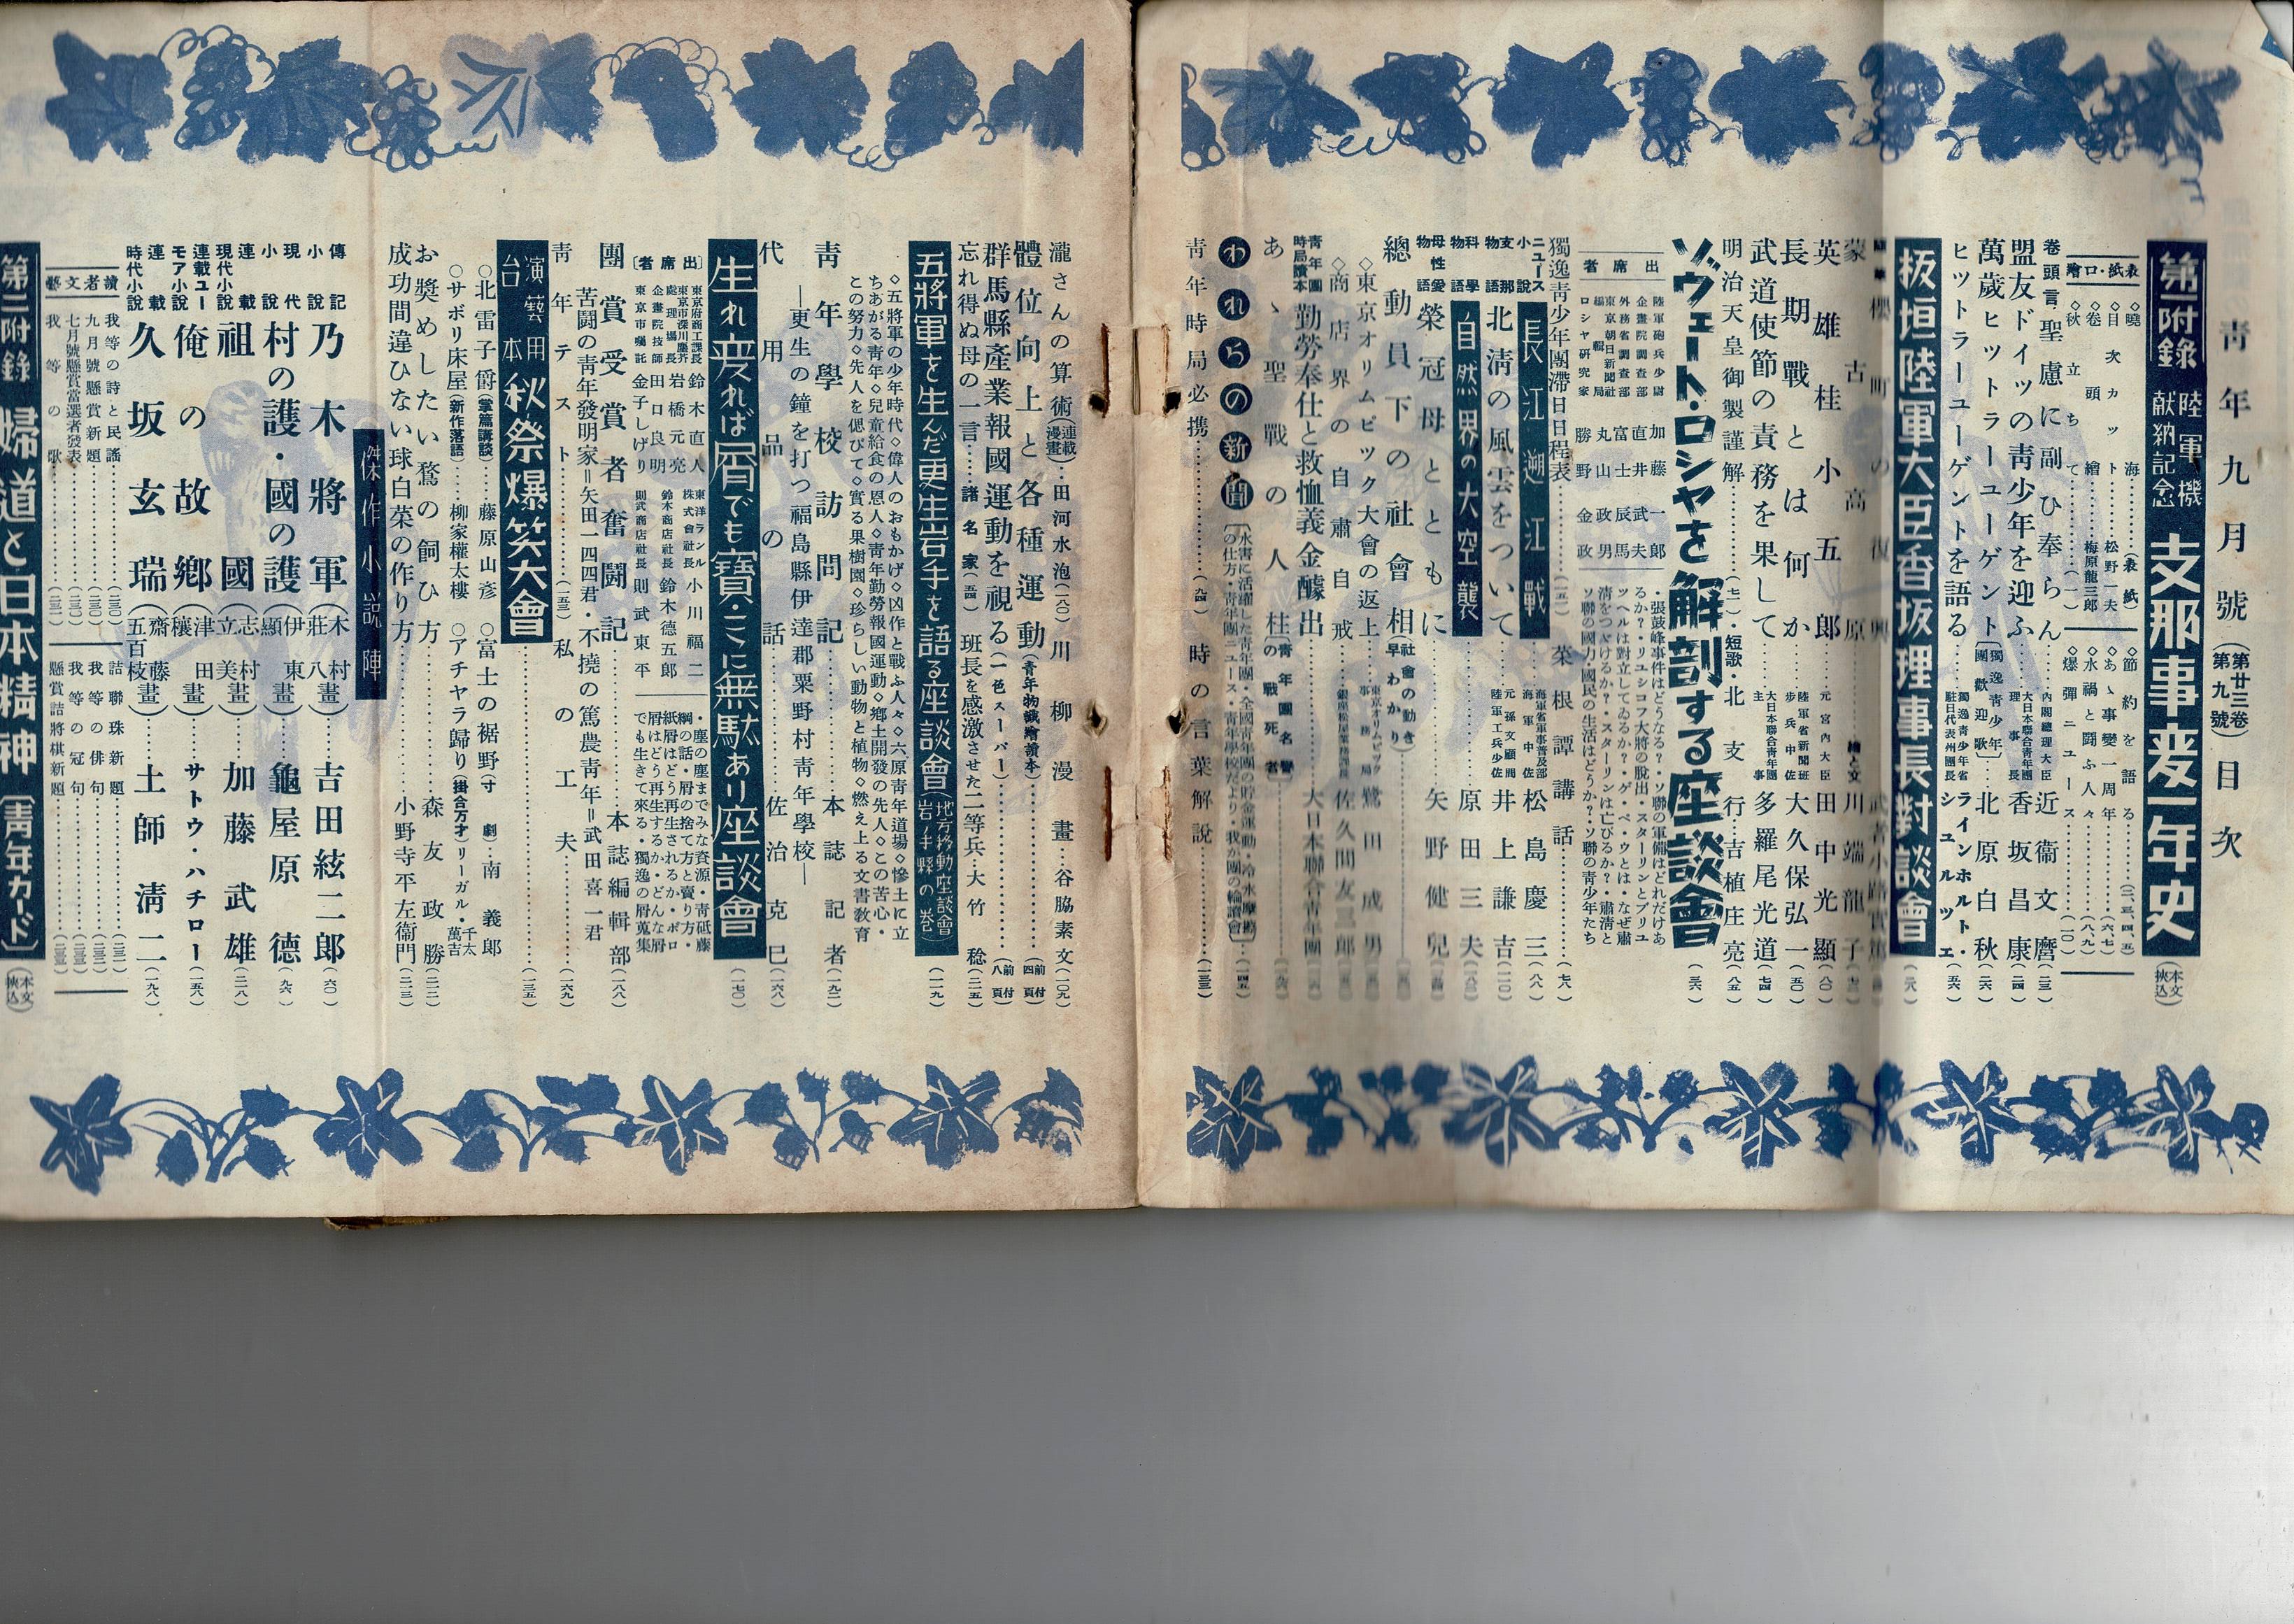 靑年九月號(第廿三卷第九號)目次
第一附錄 陸軍機献納記念 支那事變一年史(本文挾込)
表紙・口繪
◇曉の海……(表紙)
◇目次カット……松野一夫
◇卷頭繪……梅原龍三郎
◇秋立ちて……(一)
◇節約を語る……(二、三、四、五)
◇あゝ事變一周年……(六、七)
◇水禍と闘ふ人々……(八、九)
◇爆彈ニュース……(一〇)
卷頭言・聖慮に副ひ奉らん……內閣總理大臣 近衞文麿
盟友ドイツの靑少年を迎ふ……大日本聯合靑年團理事長 香坂昌康
萬歲ヒットラーユーゲント〔獨逸靑少年團歡迎歌〕……北原白秋
ヒットラーユーゲントを語る 獨逸靑少年省駐日代表州團長 ラインホルト・シュルツェ
板垣陸軍大臣香坂理事長對談會
櫻町の復興……武者小路實篤
蒙古高原……(繪と文)川端龍子
英雄桂小五郞……元宮內大臣 田中光顯(八〇)
長期戰とは何か……陸軍省新聞班步兵中佐 大久保弘一(五〇)
武道使節の責務を果して……大日本聯合靑年團主事 多羅尾光道(七四)
明治天皇御製謹解……(七一)・短歌・北支行・吉植庄亮(八五)
ソヴェート・ロシヤを解剖する座談會
・張鼓峰事件はどうなる?・ソ聯の軍備はどれだけあるか?・リユシコフ大將の脫出・スターリンとブリュッヘルは對立してゐるか?・ゲ・ペ・ウとは・なぜ肅淸をつゞけるか?・スターリンは亡びるか?・肅淸とソ聯の國力・國民の生活はどうか?・ソ聯の靑少年たち
出席者
陸軍砲兵少尉 加藤武一郞
企畫院調查部 直井武夫
外務省調查部 富士辰馬
東京朝日新聞社編輯局 丸山政男
ロシヤ硏究家 勝野金政
獨逸靑少年團滯日日程表……(五一)菜根譚講話……(七八)
ニュース小說 長江遡江戰 海軍省軍事普及部海軍中佐 松島慶三(八八)
支那物語 北淸の風雲をついて……元孫文顧問陸軍工兵少佐 井上謙吉(一一〇)
科學物語 自然界の大空襲……原田三夫
母性愛物語 榮冠母とともに……矢野健兒
總動員下の社會相(社會の動き早わかり)
◇東京オリムピック大會の返上……東京オリムピック事務局 鷺田成男
◇商店界の自肅自戒……銀座松屋業務課長 佐久間友三郞
靑年團時局讀本 勤勞奉仕と救恤義金醵出……大日本聯合靑年團
あゝ聖戰の人柱(靑年團名譽の戰死者)
われらの新聞
靑年時局必携……(九四)時の言葉解說……(一三三)
瀧さんの算術(連載漫畫)・田河水泡(一八〇)川柳漫畫・谷脇素文(一〇九)
體位向上と各種運動(靑年物識繪讀本)……(前付四頁)
群馬縣產業報國運動を視る(一色スーパー)……(前付八頁)
忘れ得ぬ母の一言……諸名家(五四)班長を感激させた二等兵・大竹稔(二一五)
五將軍を生んだ更生岩手を語る座談會(地方移動座談會岩ノ手縣の卷)(一一九)
◇五將軍の少年時代◇偉人のおもかげ◇凶作と戰ふ人々◇六原靑年道場◇慘土に立ちあがる靑年◇兒童給食の恩人◇靑年勤勞報國運動◇鄉土開發の先人◇この苦心・この努力◇先人を偲びて◇實る果樹園◇珍らしい動物と植物◇燃え上る文書敎育
靑年學校訪問記……本誌記者(一九二)
―更生の鐘を打つ福島縣伊達郡粟野村靑年學校―
代用品の話……佐治克巳(一六八)
生れ變れば屑でも寶・こゝに無駄あり座談會(一七〇)
・塵の塵までみな資源・靑砥藤綱の話・屑の捨て方と賣り方・紙屑はどう再生されるか・ボロ屑はどう再生するか・どんな屑でも生きて來る・獨逸の屑蒐集
〔出席者〕
東京府商工課長 鈴木直人
東京市深川塵芥處理場長 岩橋元亮
企畫院技師 田口良明
東京市囑託 金子しげり
東洋ランドル株式會社長 小川福二
鈴木商店社長 鈴木德五郞
則武商店社長 則武東平
團賞受賞者奮闘記……本誌編輯部(一八八)
苦闘の靑年發明家=矢田一四四君・不撓の篤農靑年=武田喜一君
靑年テスト……(一五三)私の工夫……(一六九)
演藝用台本 秋祭爆笑大會……(一三五)
○北雷子爵(掌篇講談)……藤原山彥 ○富士の裾野(寸劇)・南義郞
○サボリ床屋(新作落語)……柳家權太樓 ○アチャラ歸り(掛合万才)リーガル・千太萬吉
お奬めしたい鶩の飼ひ方……森友政勝(二二二)
成功間違ひない球白菜の作り方……小野寺平左衞門(二二三)
傑作小說陣
傳記小說 乃木將軍(木村莊八畫)……吉田絃二郞(六〇)
現代小說 村の護・國の護(伊東顯畫)……龜屋原德(九六)
連載現代小說 祖國(志村立美畫)……加藤武雄(二一八)
連載ユーモア小說 俺の故鄕(津田穰畫)……サトウ・ハチロー(一五八)
連載時代小說 久坂玄瑞(齋藤五百枝畫)……土師淸二(一九八)
讀者文藝
我等の詩と民謠……(二三〇)
九月號懸賞新題……(二三〇)
七月號懸賞當選者發表……(二三〇)
我等の歌……(二三二)
詰聯珠新題……(二三一)
我等の俳句……(二三三)
我等の冠句……(二三三)
懸賞詰將棋新題……(二三五)
第二附錄 婦道と日本精神〔靑年カード〕(本文挾込)